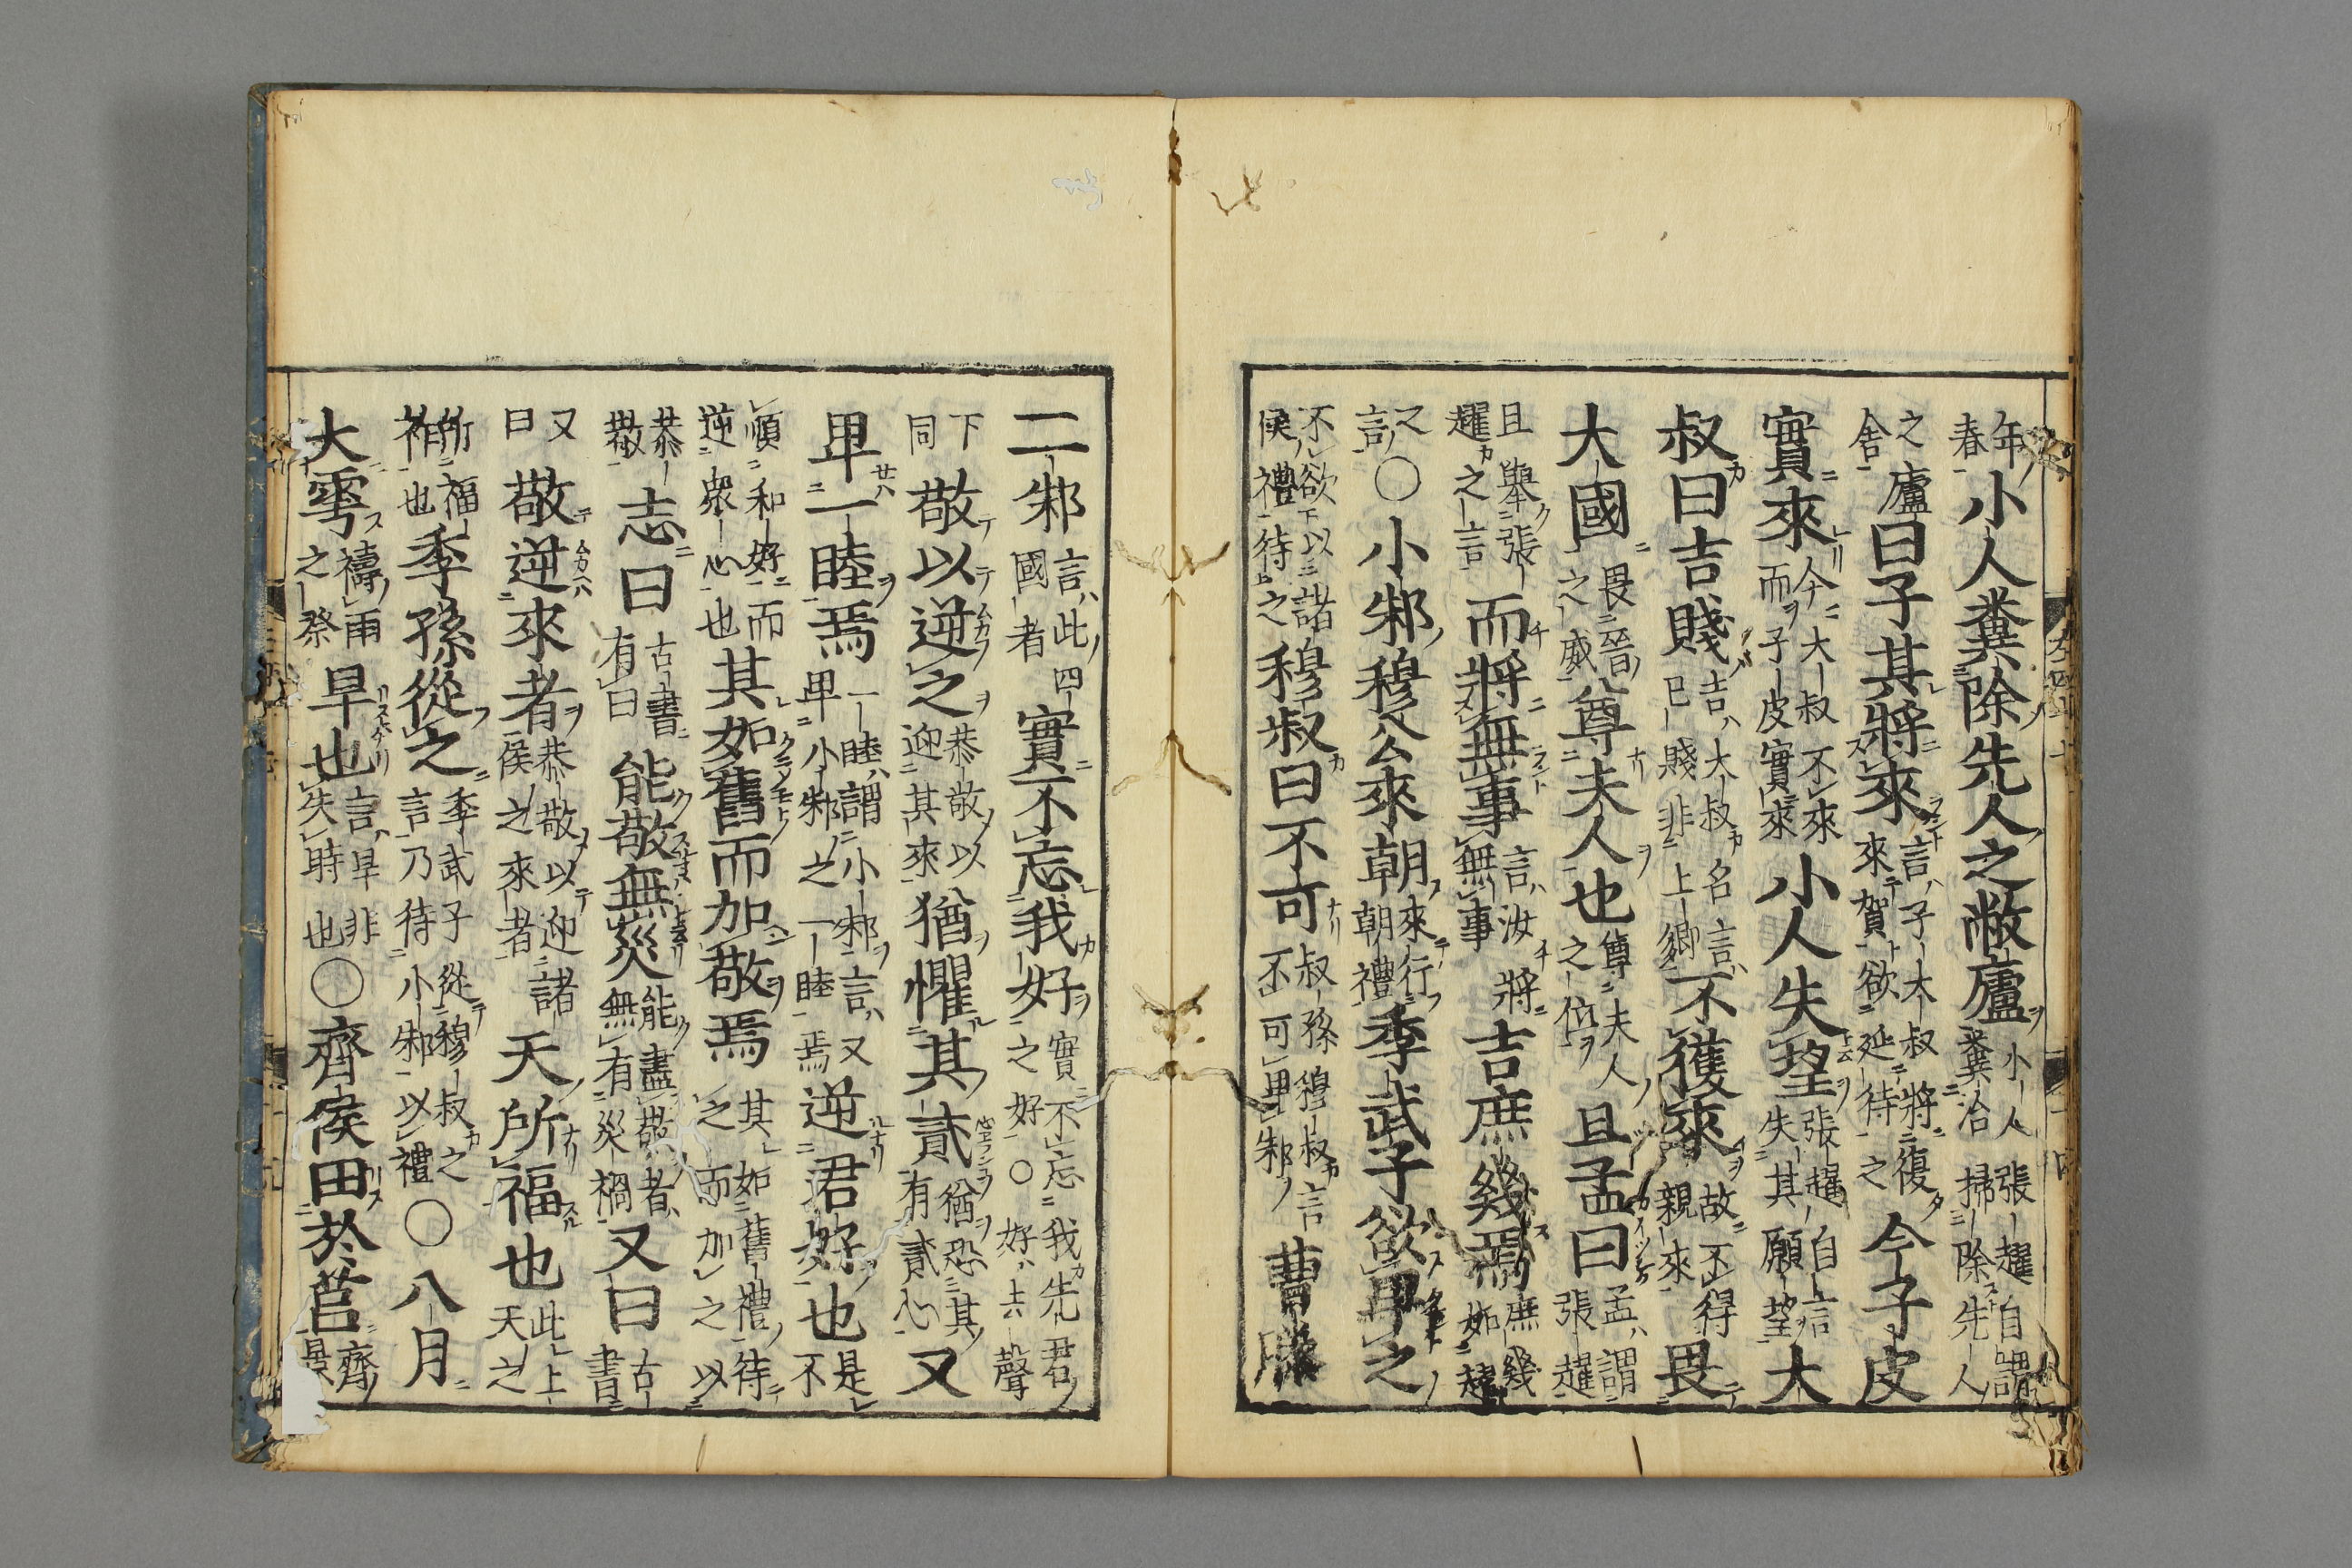 年春小人糞除先人之敝廬小人張趯自謂糞治掃除先人
之廬舍曰子其將來言子大叔將復來賀欲延待之今子皮
實來今大叔不來而子皮實來小人失望張趯自言失其願望大
叔曰吉賤吉大叔名言巳賤非上卿不獲來故不得親來畏
大國畏晉之威尊夫人也尊夫人之位且孟曰孟謂張趯
且舉張趯之言而將無事言汝將無事吉庶幾焉庶幾如趯
之言○小邾穆公來朝來行朝禮季武子欲卑之
不欲以諸侯禮待之穆叔曰不可叔孫穆叔言不可卑邾曹滕
二邾言此四國者實不忘我好實不忘我先君之好○好去聲
下同敬以逆之恭敬以迎其來猶懼其貳猶恐其有貳心又
卑一睦焉一睦謂小邾言又卑小邾之一睦焉逆君好也是不
順和好而逆衆心也其如舊而加敬焉其如舊禮待之而加之以
恭敬志曰古書有曰能敬無災能盡敬者無有災禍又曰古書
又曰敬逆來者恭敬以迎諸侯之來者天所福也此上天之
所福祚也季孫從之季武子從穆叔之言乃待小邾以禮○八月
大雩禱雨之祭旱也言旱非失時也○齊侯田於莒齊景